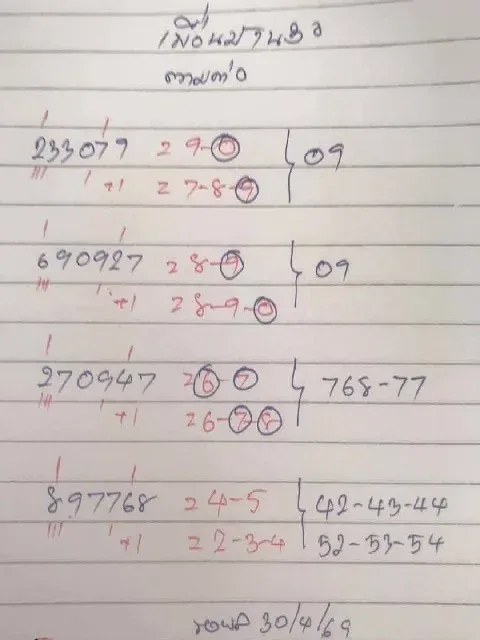 เพื่อนมานะ
ตามต่อ
233079 = 9-0 } 09
+1 = 7-8-9
690927 = 8-9 } 09
+1 = 8-9-0
270947 = 6-7 } 768-77
+1 = 6-7-8
897768 = 4-5 } 42-43-44
+1 = 2-3-4 } 52-53-54
30/4/69